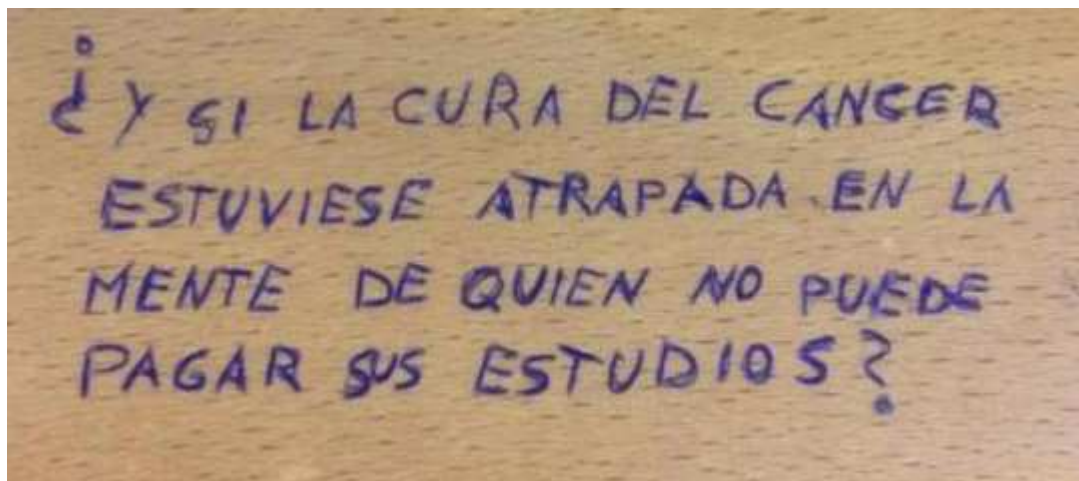 ¿Y SI LA CURA DEL CANCER
ESTUVIESE ATRAPADA EN LA
MENTE DE QUIEN NO PUEDE
PAGAR SUS ESTUDIOS?